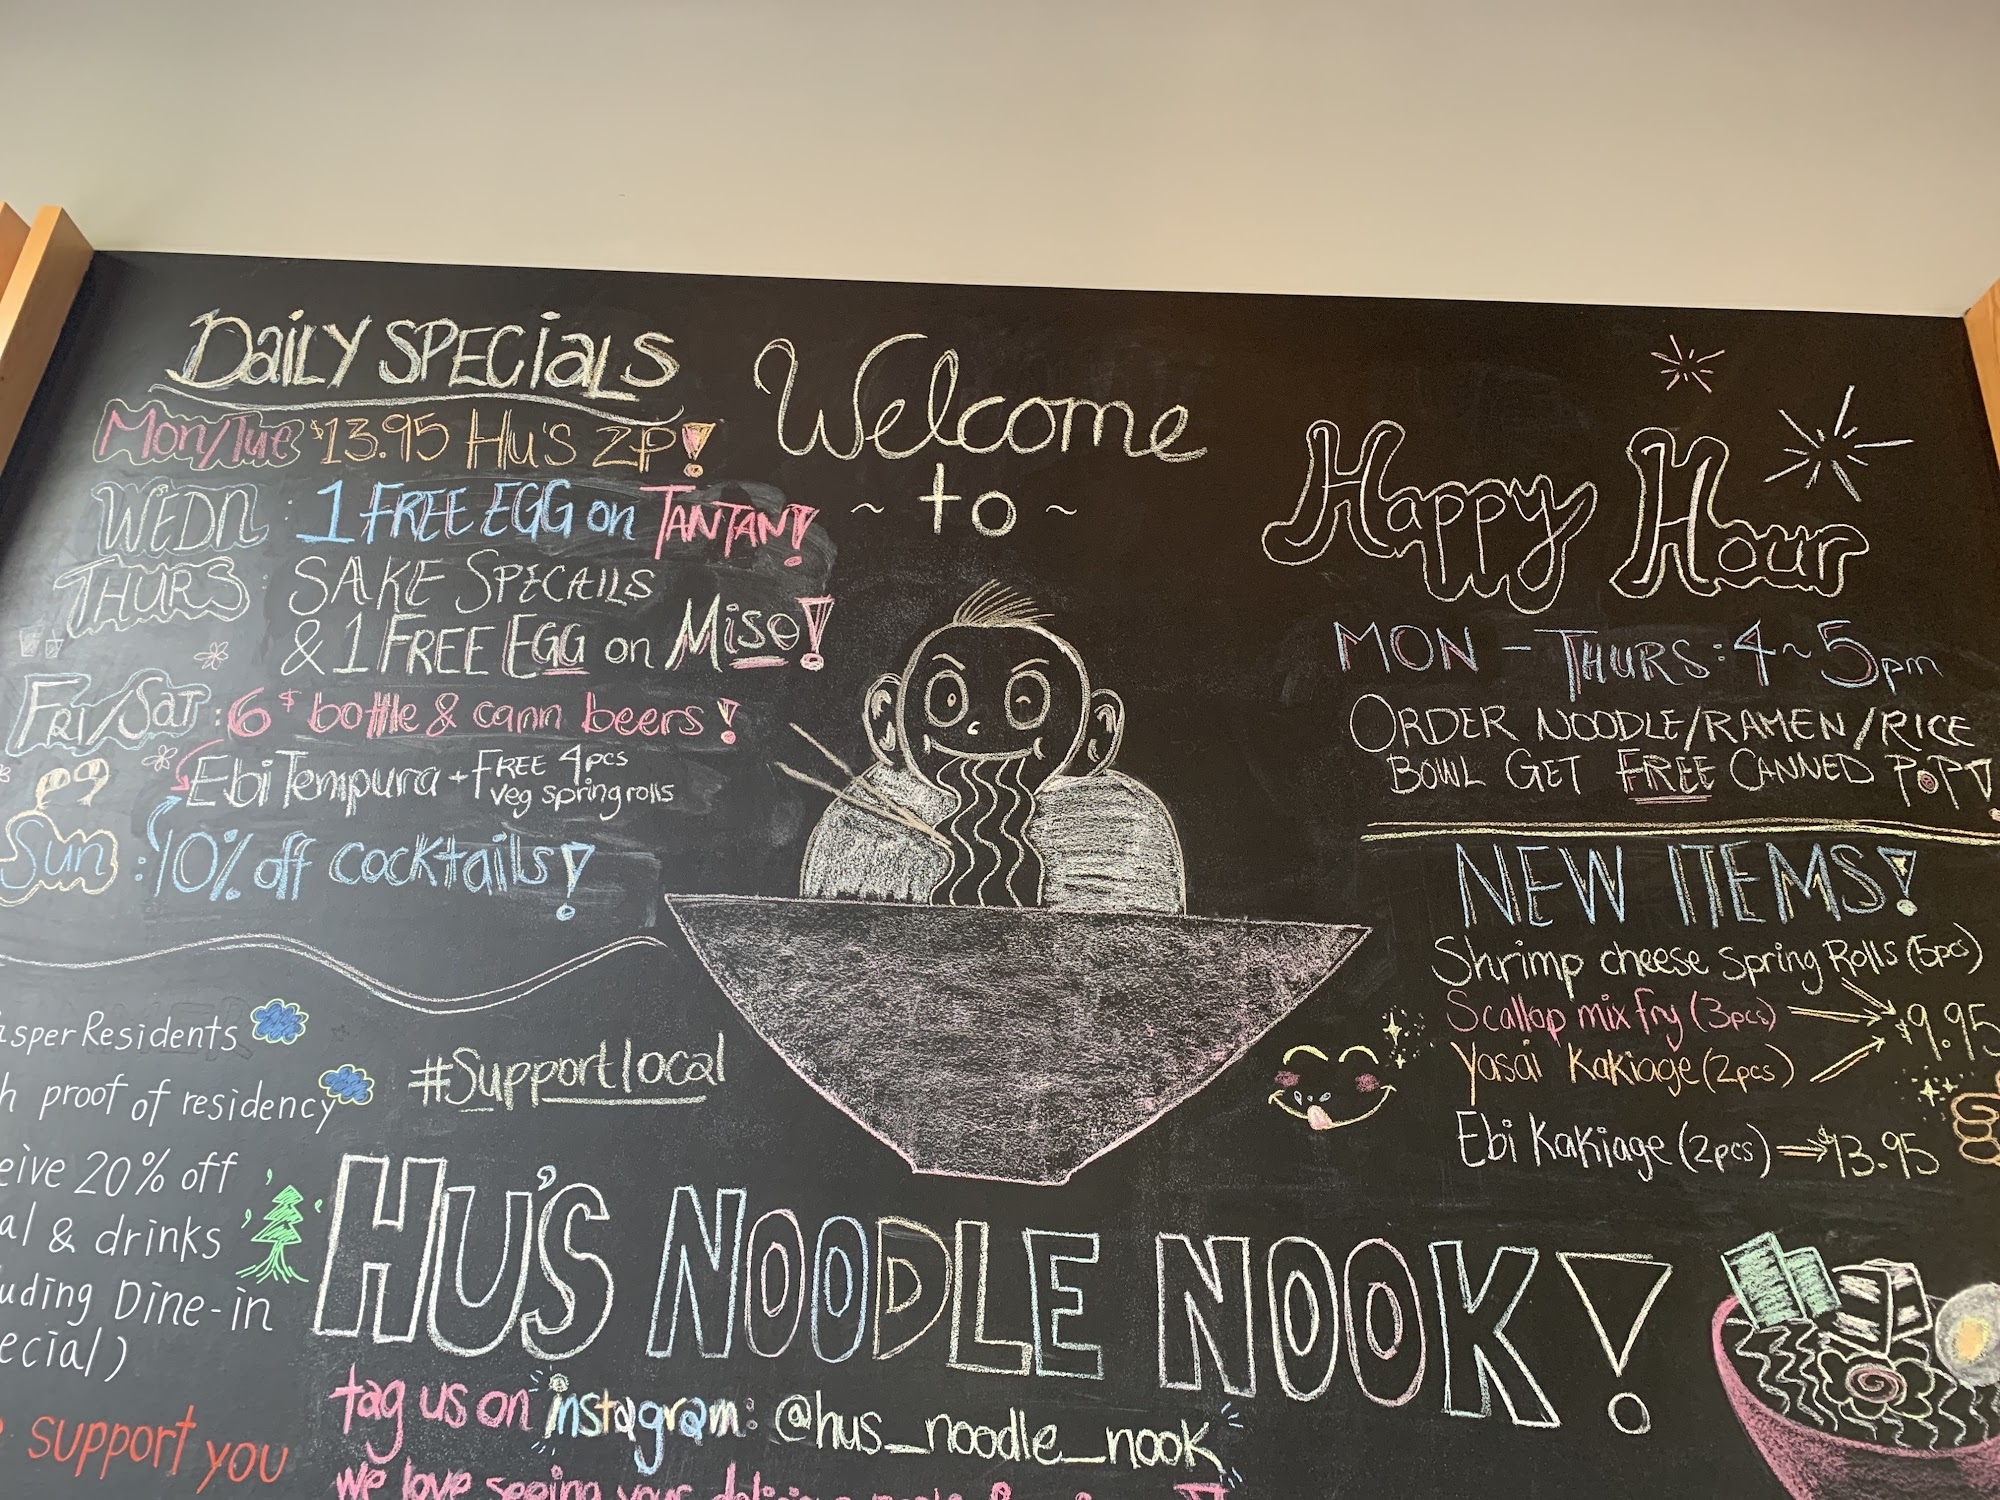 Daily SPECiALS
Mon/Tue $13.95 Hu's ZP!
WEDN : 1 FREE EGG on TANTAN!
THURS : SAKE SPECAILS
& 1 FREE EGG on Miso!
Fri/Sat : 6$ bottle & cann beers!
Ebi Tempura + FREE 4pcs
veg springrolls
Sun : 10% off cocktails!
asper Residents
h proof of residency
eive 20% off
al & drinks
uding Dine-in
ecial)
support you
#Supportlocal
Welcome
~ to ~
HU'S NOODLE NOOK!
tag us on instagram: @hus_noodle_nook
we love seeing your
Happy Hour
MON - THURS: 4~5pm
ORDER NOODLE/RAMEN/RICE
BOWL GET FREE CANNED POP!
NEW ITEMS!
Shrimp cheese Spring Rolls (5pcs)
Scallop mix fry (3pcs)
$9.95
Yasai Kakiage (2pcs)
Ebi Kakiage (2pcs) $13.95